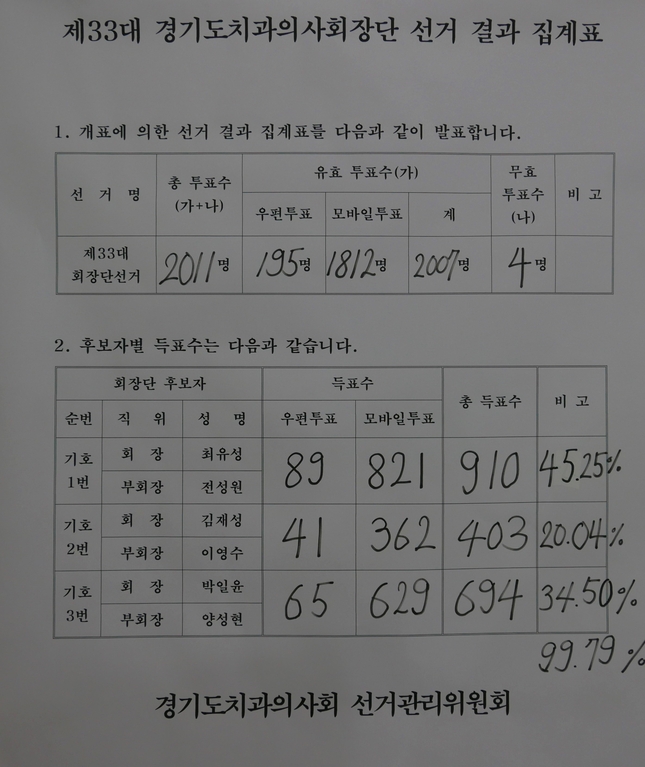 제33대 경기도치과의사회장단 선거 결과 집계표
1. 개표에 의한 선거 결과 집계표를 다음과 같이 발표합니다.
선 거 명 총 투표수 (가+나) 유효 투표수(가) 무효 투표수 (나) 비 고
우편투표 모바일투표 계
제33대 회장단선거 2011명 195명 1812명 2007명 4명
2. 후보자별 득표수는 다음과 같습니다.
회장단 후보자 득표수 총 득표수 비 고
순번 직 위 성 명 우편투표 모바일투표
기호 1번 회 장 최유성 89 821 910 45.25%
부회장 전성원
기호 2번 회 장 김재성 41 362 403 20.04%
부회장 이영수
기호 3번 회 장 박일윤 65 629 694 34.50%
부회장 양성현
99.79%
경기도치과의사회 선거관리위원회